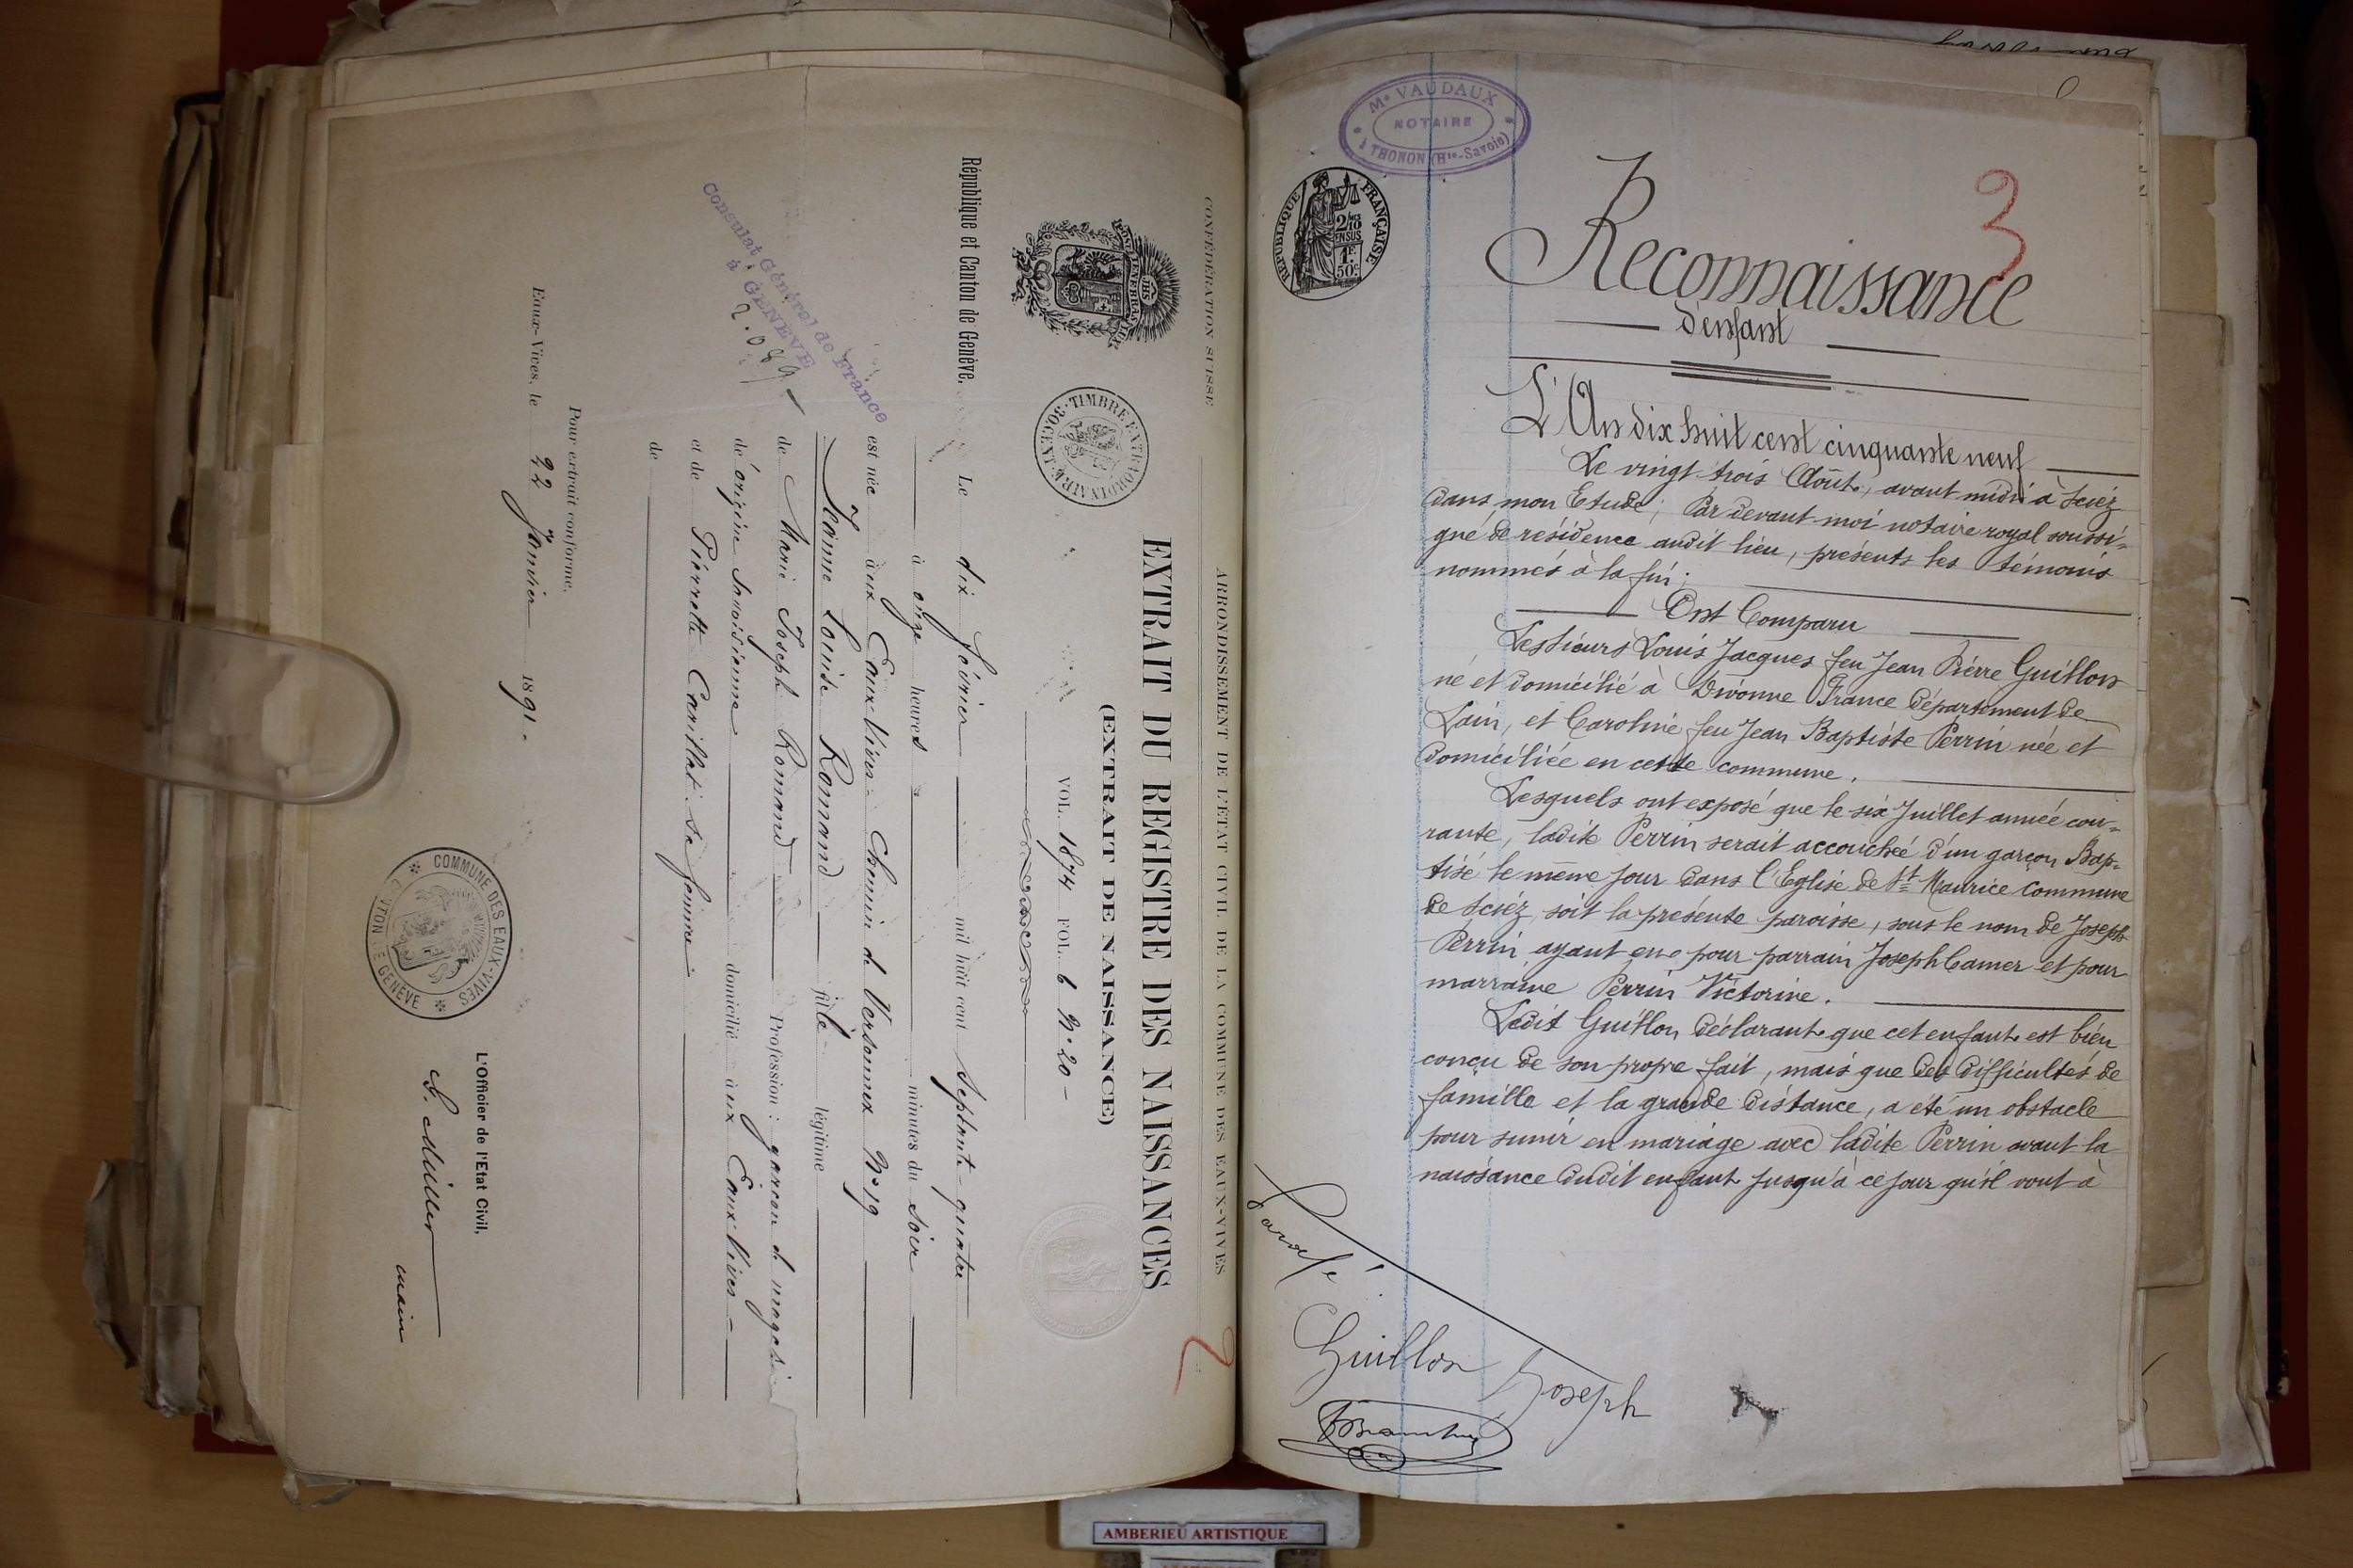 CONFÉDÉRATION SUISSE
ARRONDISSEMENT DE L'ÉTAT CIVIL DE LA COMMUNE DES EAUX-VIVES
EXTRAIT DU REGISTRE DES NAISSANCES
(EXTRAIT DE NAISSANCE)
VOL. 1874 FOL. 6 N° 20 -
TIMBRE EXTRAORDINAIRE
30 CENT.
POST TENEBRAS LUX
République et Canton de Genève.
Le dix février mil huit cent septante-quatre
à onze heures minutes du soir
est née aux Eaux-Vives Chemin de Versonnex N° 19
Jeanne Louise Romand fille légitime
de Marie Joseph Romand Profession : garçon de magasin
de origine Savoisienne domicilié aux Eaux-Vives -
et de Pierrette Carillat sa femme
de
Pour extrait conforme.
Eaux-Vives, le 22 Janvier 1891.
L'Officier de l'Etat Civil,
COMMUNE DES EAUX-VIVES
CANTON DE GENÈVE
Consulat Général de France
à GENÈVE
2.089
M° VAUDAUX
NOTAIRE
à THONON (Hte-Savoie)
REPUBLIQUE FRANÇAISE
2/10
EN SUS
1F
50c
3
Reconnaissance
d'enfant
L'An dix huit cent cinquante neuf
Le vingt trois Août, avant midi à Sciez
dans mon Etude, Par devant moi notaire royal soussi-
gné de résidence audit lieu, présents les témoins
nommés à la fin ;
Ont Comparu
Les sieurs Louis Jacques feu Jean Pierre Guillon
né et domicilié à Divonne (France département de
Lain, et Caroline feu Jean Baptiste Perrin née et
domiciliée en cette commune.
Lesquels ont exposé que le six Juillet année cou-
rante, ladite Perrin serait accouchée d'un garçon Bap-
tisé le même jour dans l'Eglise de St Maurice commune
de Sciez, soit la présente paroisse, sous le nom de Joseph
Perrin ayant eue pour parrain Joseph Camer et pour
marraine Perrin Victorine.
Ledit Guillon déclarant que cet enfant est bien
conçu de son propre fait, mais que des difficultés de
famille et la grande distance, a été un obstacle
pour sunir en mariage avec ladite Perrin avant la
naissance dudit enfant jusqu'à ce jour qu'il vont à
Guillon Joseph
AMBERIEU ARTISTIQUE